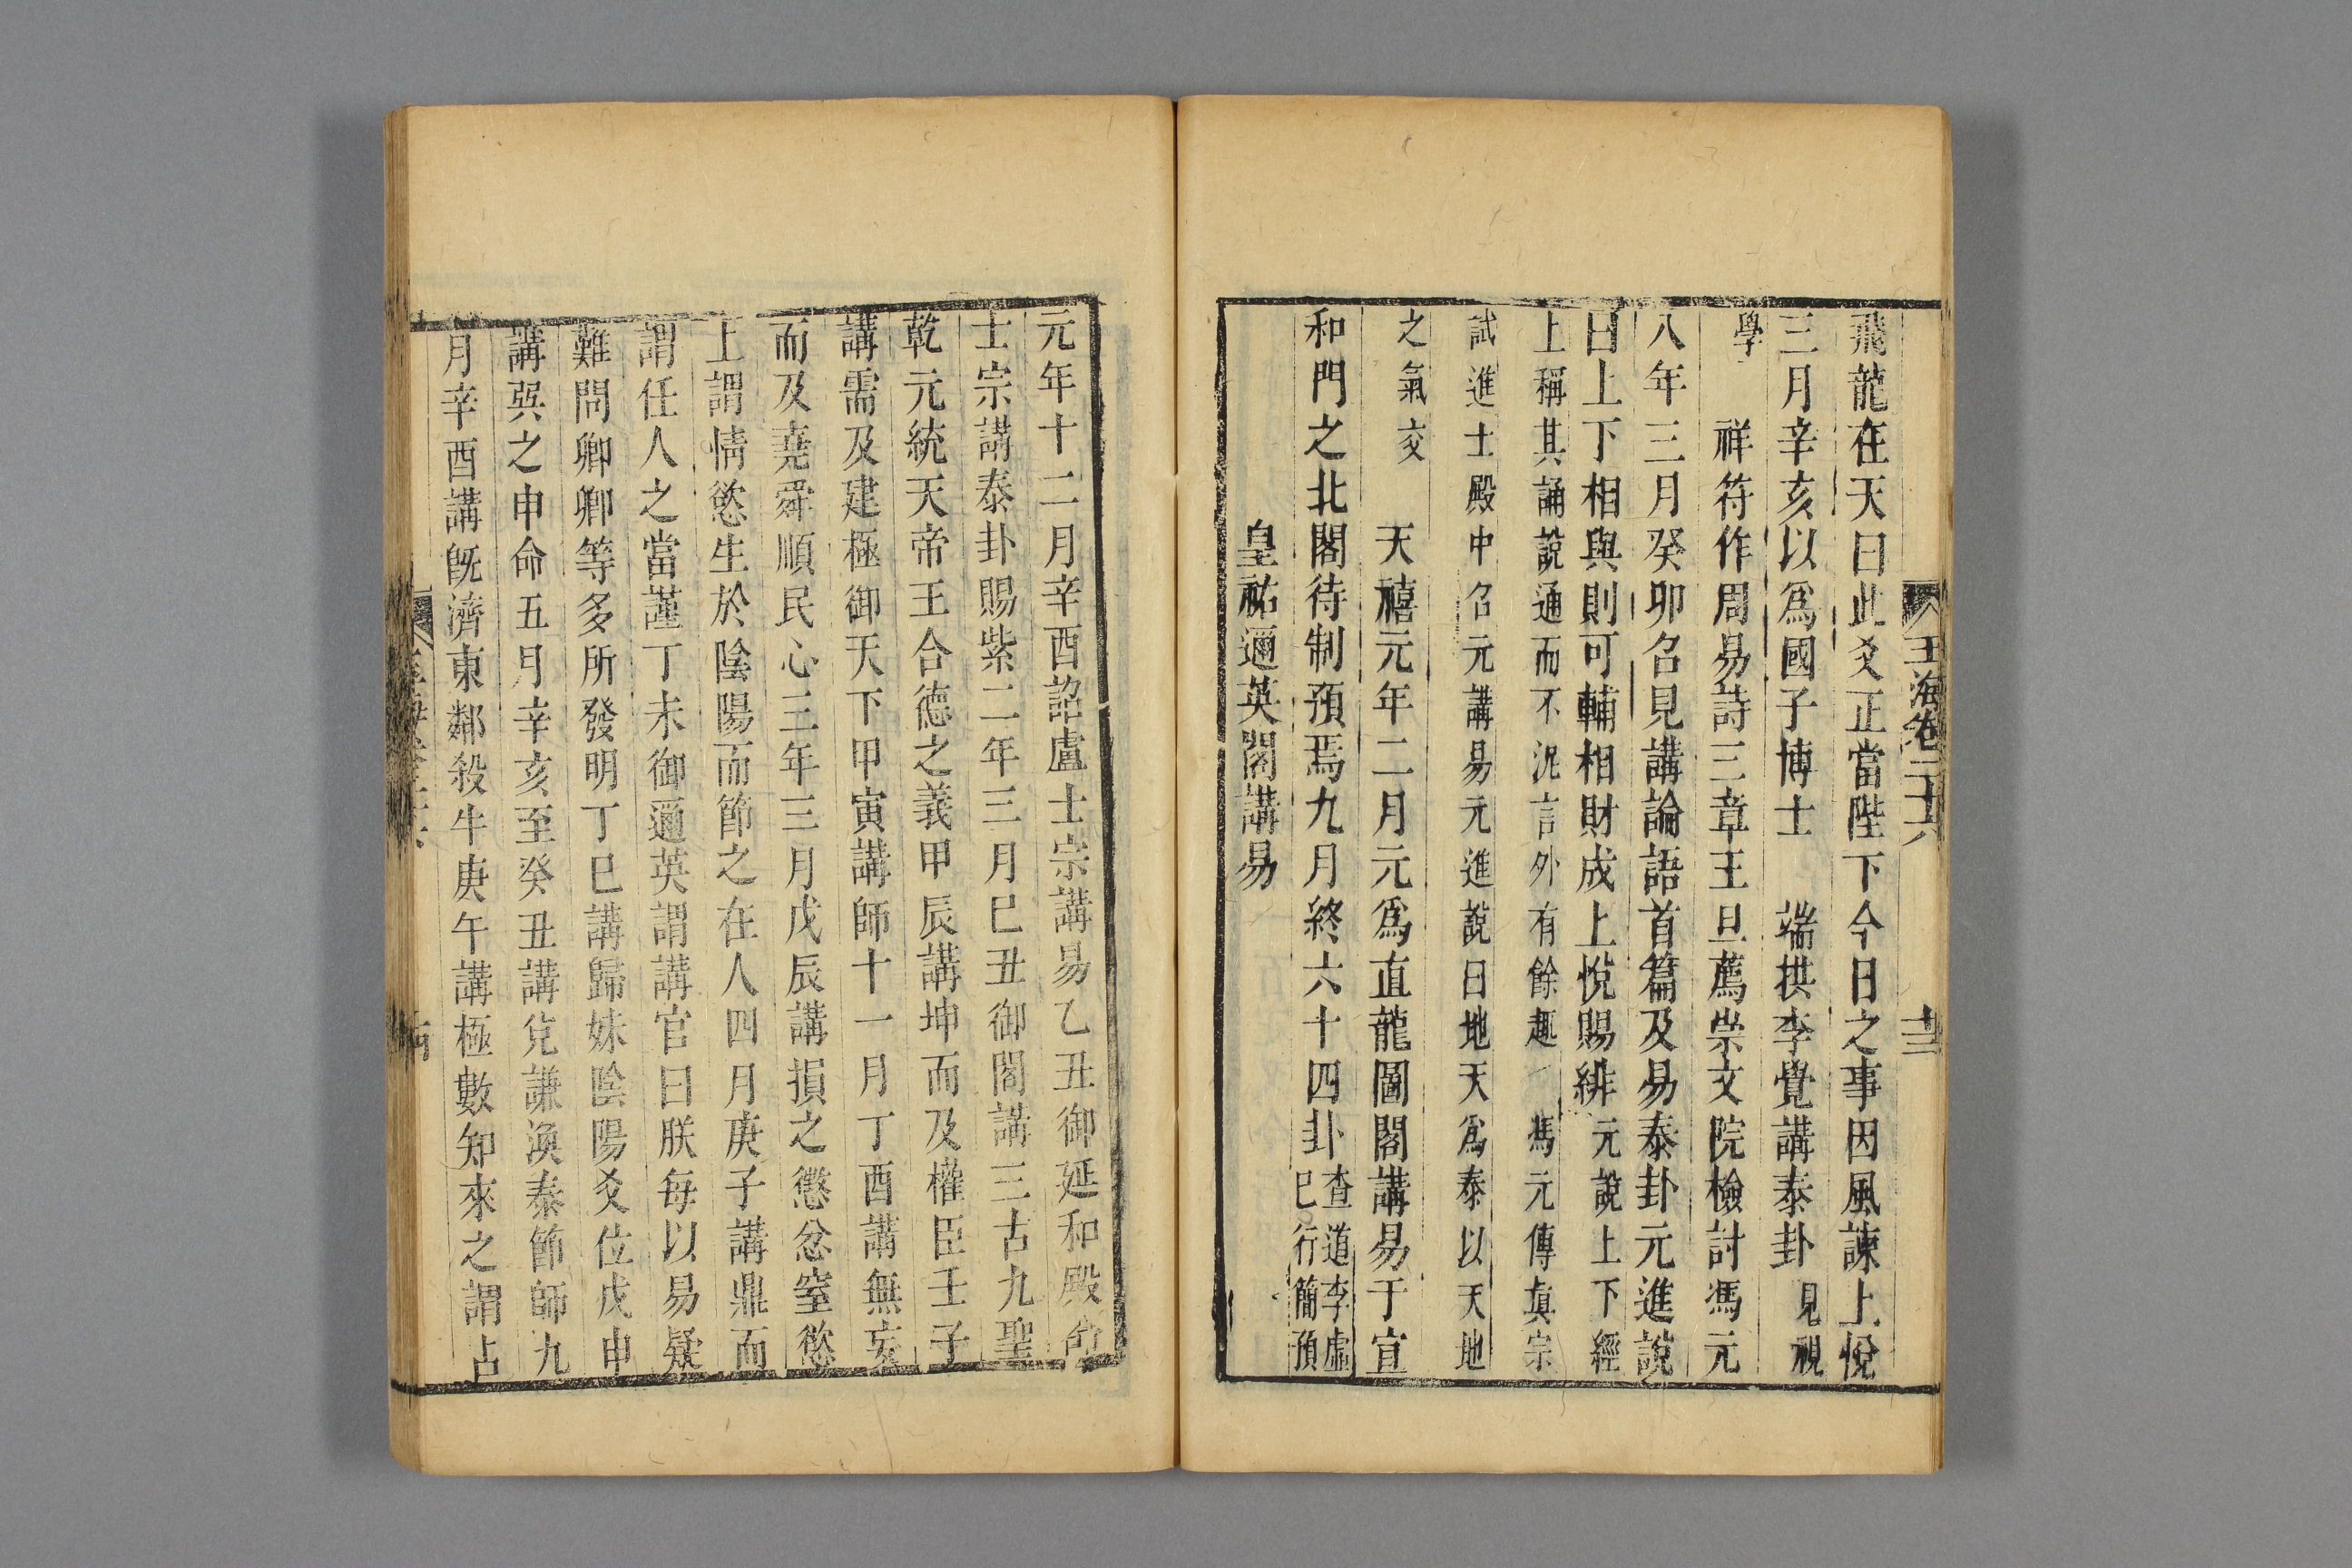 玉海卷二十六 十三
飛龍在天曰此爻正當陛下今日之事因風諫上悅
三月辛亥以爲國子博士 端拱李覺講泰卦見視
學 祥符作周易詩三章王旦薦崇文院檢討馮元
八年三月癸卯召見講論語首篇及易泰卦元進說
曰上下相與則可輔相財成上悅賜緋元說上下經
上稱其誦說通而不泥言外有餘趣 馮元傳眞宗
試進士殿中召元講易元進說曰地天爲泰以天地
之氣交 天禧元年二月元爲直龍圖閣講易于宣
和門之北閣待制預焉九月終六十四卦查道李虛
巳行簡預
皇祐邇英閣講易
元年十二月辛酉詔盧士宗講易乙丑御延和殿命
士宗講泰卦賜紫二年三月巳丑御閣講三古九聖
乾元統天帝王合德之義甲辰講坤而及權臣壬子
講需及建極御天下甲寅講師十一月丁酉講無妄
而及堯舜順民心三年三月戊辰講損之懲忿窒慾
上謂情慾生於陰陽而節之在人四月庚子講鼎而
謂任人之當謹丁未御邇英謂講官曰朕每以易疑
難問卿卿等多所發明丁巳講歸妹陰陽爻位戊申
講巽之申命五月辛亥至癸丑講兌謙渙泰節師九
月辛酉講旣濟東鄰殺牛庚午講極數知來之謂占